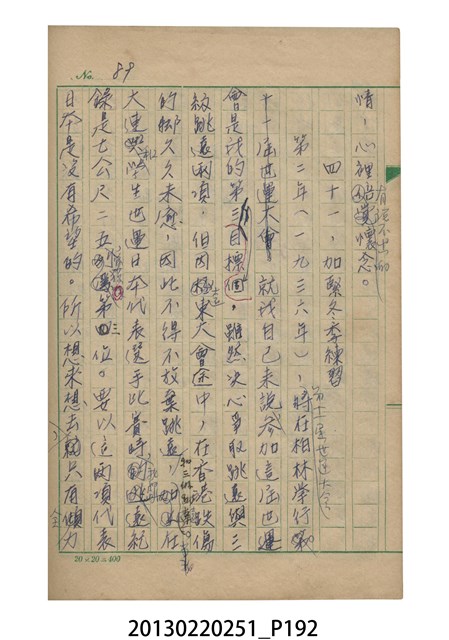 No. 89
情，心裡有說不出的懷念。
四十一，加緊冬季練習
第二年（一九三六年），將在柏林举行第十一屆世運大会
十一屆世運大會，就我自己來說參加這屆世運
會是我的第三個目標，雖然決心爭取跳遠與三
級跳遠兩項，但因遠東大會途中，在香港跌傷
的腳久久未愈，因此不得不放棄跳遠
大連與學生世運日本代表選手比賽時跳遠就
錄是七公尺二五，第三位。要以這兩項代表
日本是沒有希望的。所以想來想去只有傾全力
20×20=400
20130220251_P192